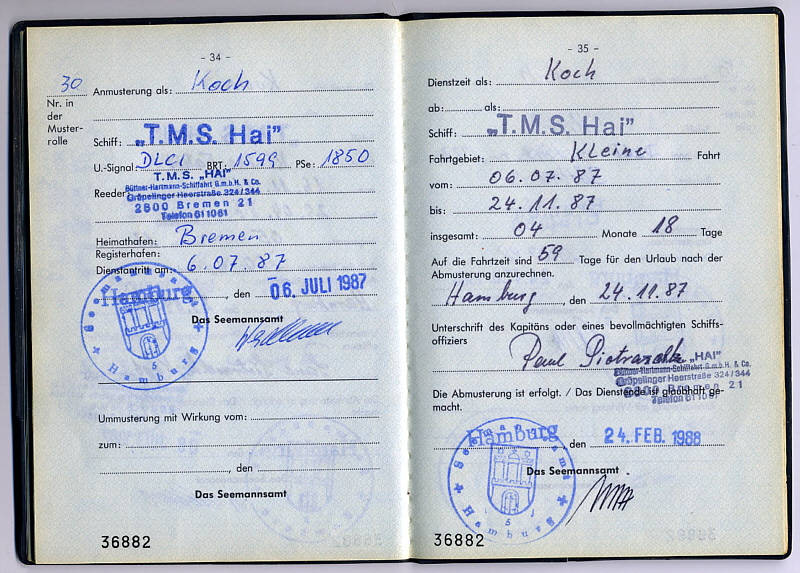 - 34 -
30
Nr. in
der
Muster-
rolle
Anmusterung als: Koch
Schiff: „T.M.S. Hai”
U.-Signal: DLCI BRT: 1599 PSe: 1850
T.M.S. „HAI”
Reeder: Büttner-Hartmann-Schiffahrt G.m.b.H. & Co.
Gröpelinger Heerstraße 324/344
2800 Bremen 21
Telefon 611061
Heimathafen: Bremen
Registerhafen:
Dienstantritt am: 6.07.87
Hamburg, den 06. JULI 1987
Das Seemannsamt
Seemannsamt
Hamburg
5
Ummusterung mit Wirkung vom:
zum:
, den
Das Seemannsamt
36882
- 35 -
Dienstzeit als: Koch
ab: als:
Schiff: „T.M.S. Hai”
Fahrtgebiet: Kleine Fahrt
vom: 06.07.87
bis: 24.11.87
insgesamt: 04 Monate 18 Tage
Auf die Fahrtzeit sind 59 Tage für den Urlaub nach der
Abmusterung anzurechnen.
Hamburg, den 24.11.87
Unterschrift des Kapitäns oder eines bevollmächtigten Schiffs-
offiziers
Paul
„HAI”
Büttner-Hartmann-Schiffahrt G.m.b.H. & Co.
Gröpelinger Heerstraße 324/344
2800 Bremen 21
Telefon 611061
Die Abmusterung ist erfolgt. / Das Dienstende ist glaubhaft ge-
macht.
Hamburg, den 24. FEB. 1988
Das Seemannsamt
Seemannsamt
Hamburg
5
36882